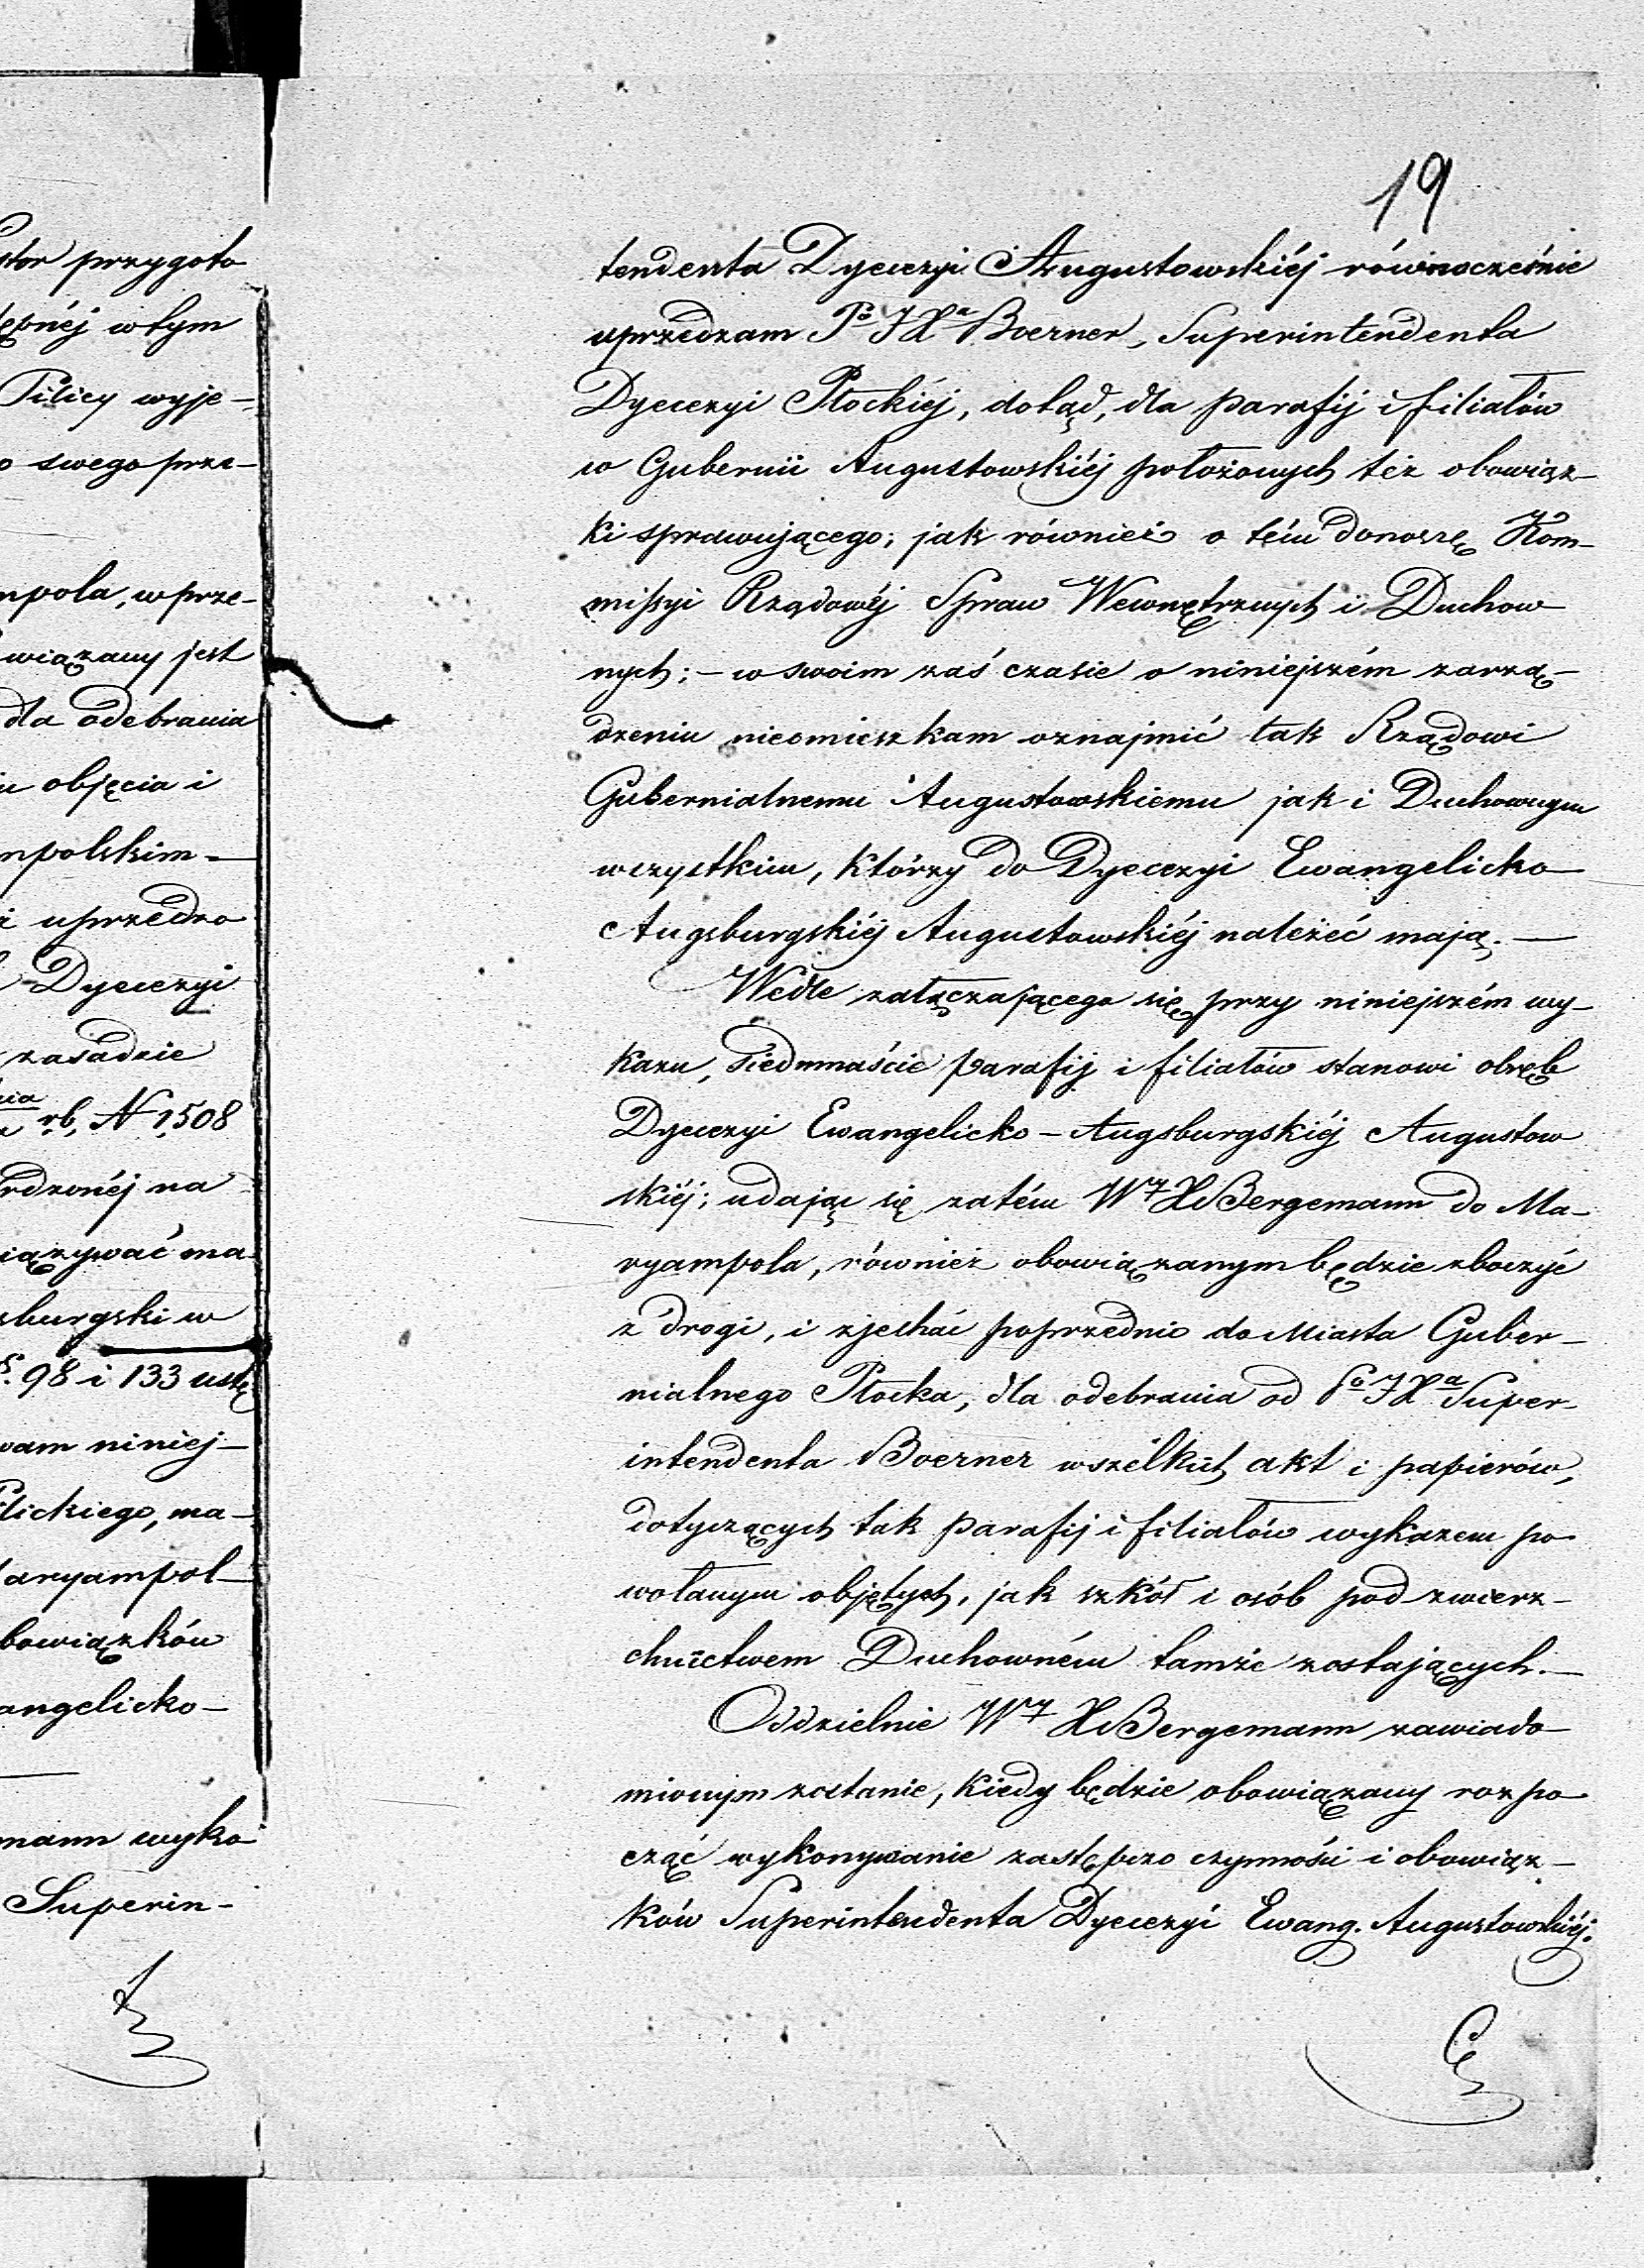 stor przygoto
ępnéj w tym
Pilicy wyje-
o swego prze-
mpola, w prze-
wiązany jest
dla odebrania
objęcia i
mpolskim -
i uprzedzo
Dyecezyi
zasadzie
rb, N 1508
rdzonéj na
iązywać ma
sburgski w
§. 98 i 133 ustę
wam niniej-
lickiego, ma-
aryampol-
bowiązków
angelicko-
mann wyko
Superin-
19
tendenta Dyecezyi Augustowskiéj równocześnie
uprzedzam Pō JXa Boerner, Superintendenta
Dyecezyi Płockiéj, dotąd, dla parafij i filiałów
w Gubernii Augustowskiéj położonych też obowiąz-
ki sprawującego; jak również o tém donoszę Kom-
missyi Rządowéj Spraw Wewnętrznych i Duchow
nych; - w swoim zaś czasie o niniejszém zarzą-
dzeniu nieomieszkam oznajmić tak Rządowi
Gubernialnemu Augustowskiemu jak i Duchownym
wszystkim, którzy do Dyecezyi Ewangelicko
Augsburgskiéj Augustowskiéj należeć mają. -
Wedle załączającego się przy niniejszém wy-
kazu, siedmnaście parafij i filiałów stanowi obręb
Dyecezyi Ewangelicko - Augsburgskiéj Augustow
skiéj; udając się zatém WJX Bergemann do Ma-
ryampola, również obowiązanym będzie zboczyć
z drogi, i zjechać poprzednio do Miasta Guber-
nialnego Płocka, dla odebrania od Pō JXa Super-
intendenta Boerner wszelkich akt i papierów,
dotyczących tak parafij i filiałów wykazem po
wołanym objętych, jak szkół i osób pod zwierz-
chnictwem Duchowném tamże zostających. -
Oddzielnie WJX Bergemann zawiado-
mionym zostanie, kiedy będzie obowiązany rozpo
cząć wykonywanie zastępczo czynności i obowiąz-
ków Superintendenta Dyecezyi Ewang. Augustowskiéj.